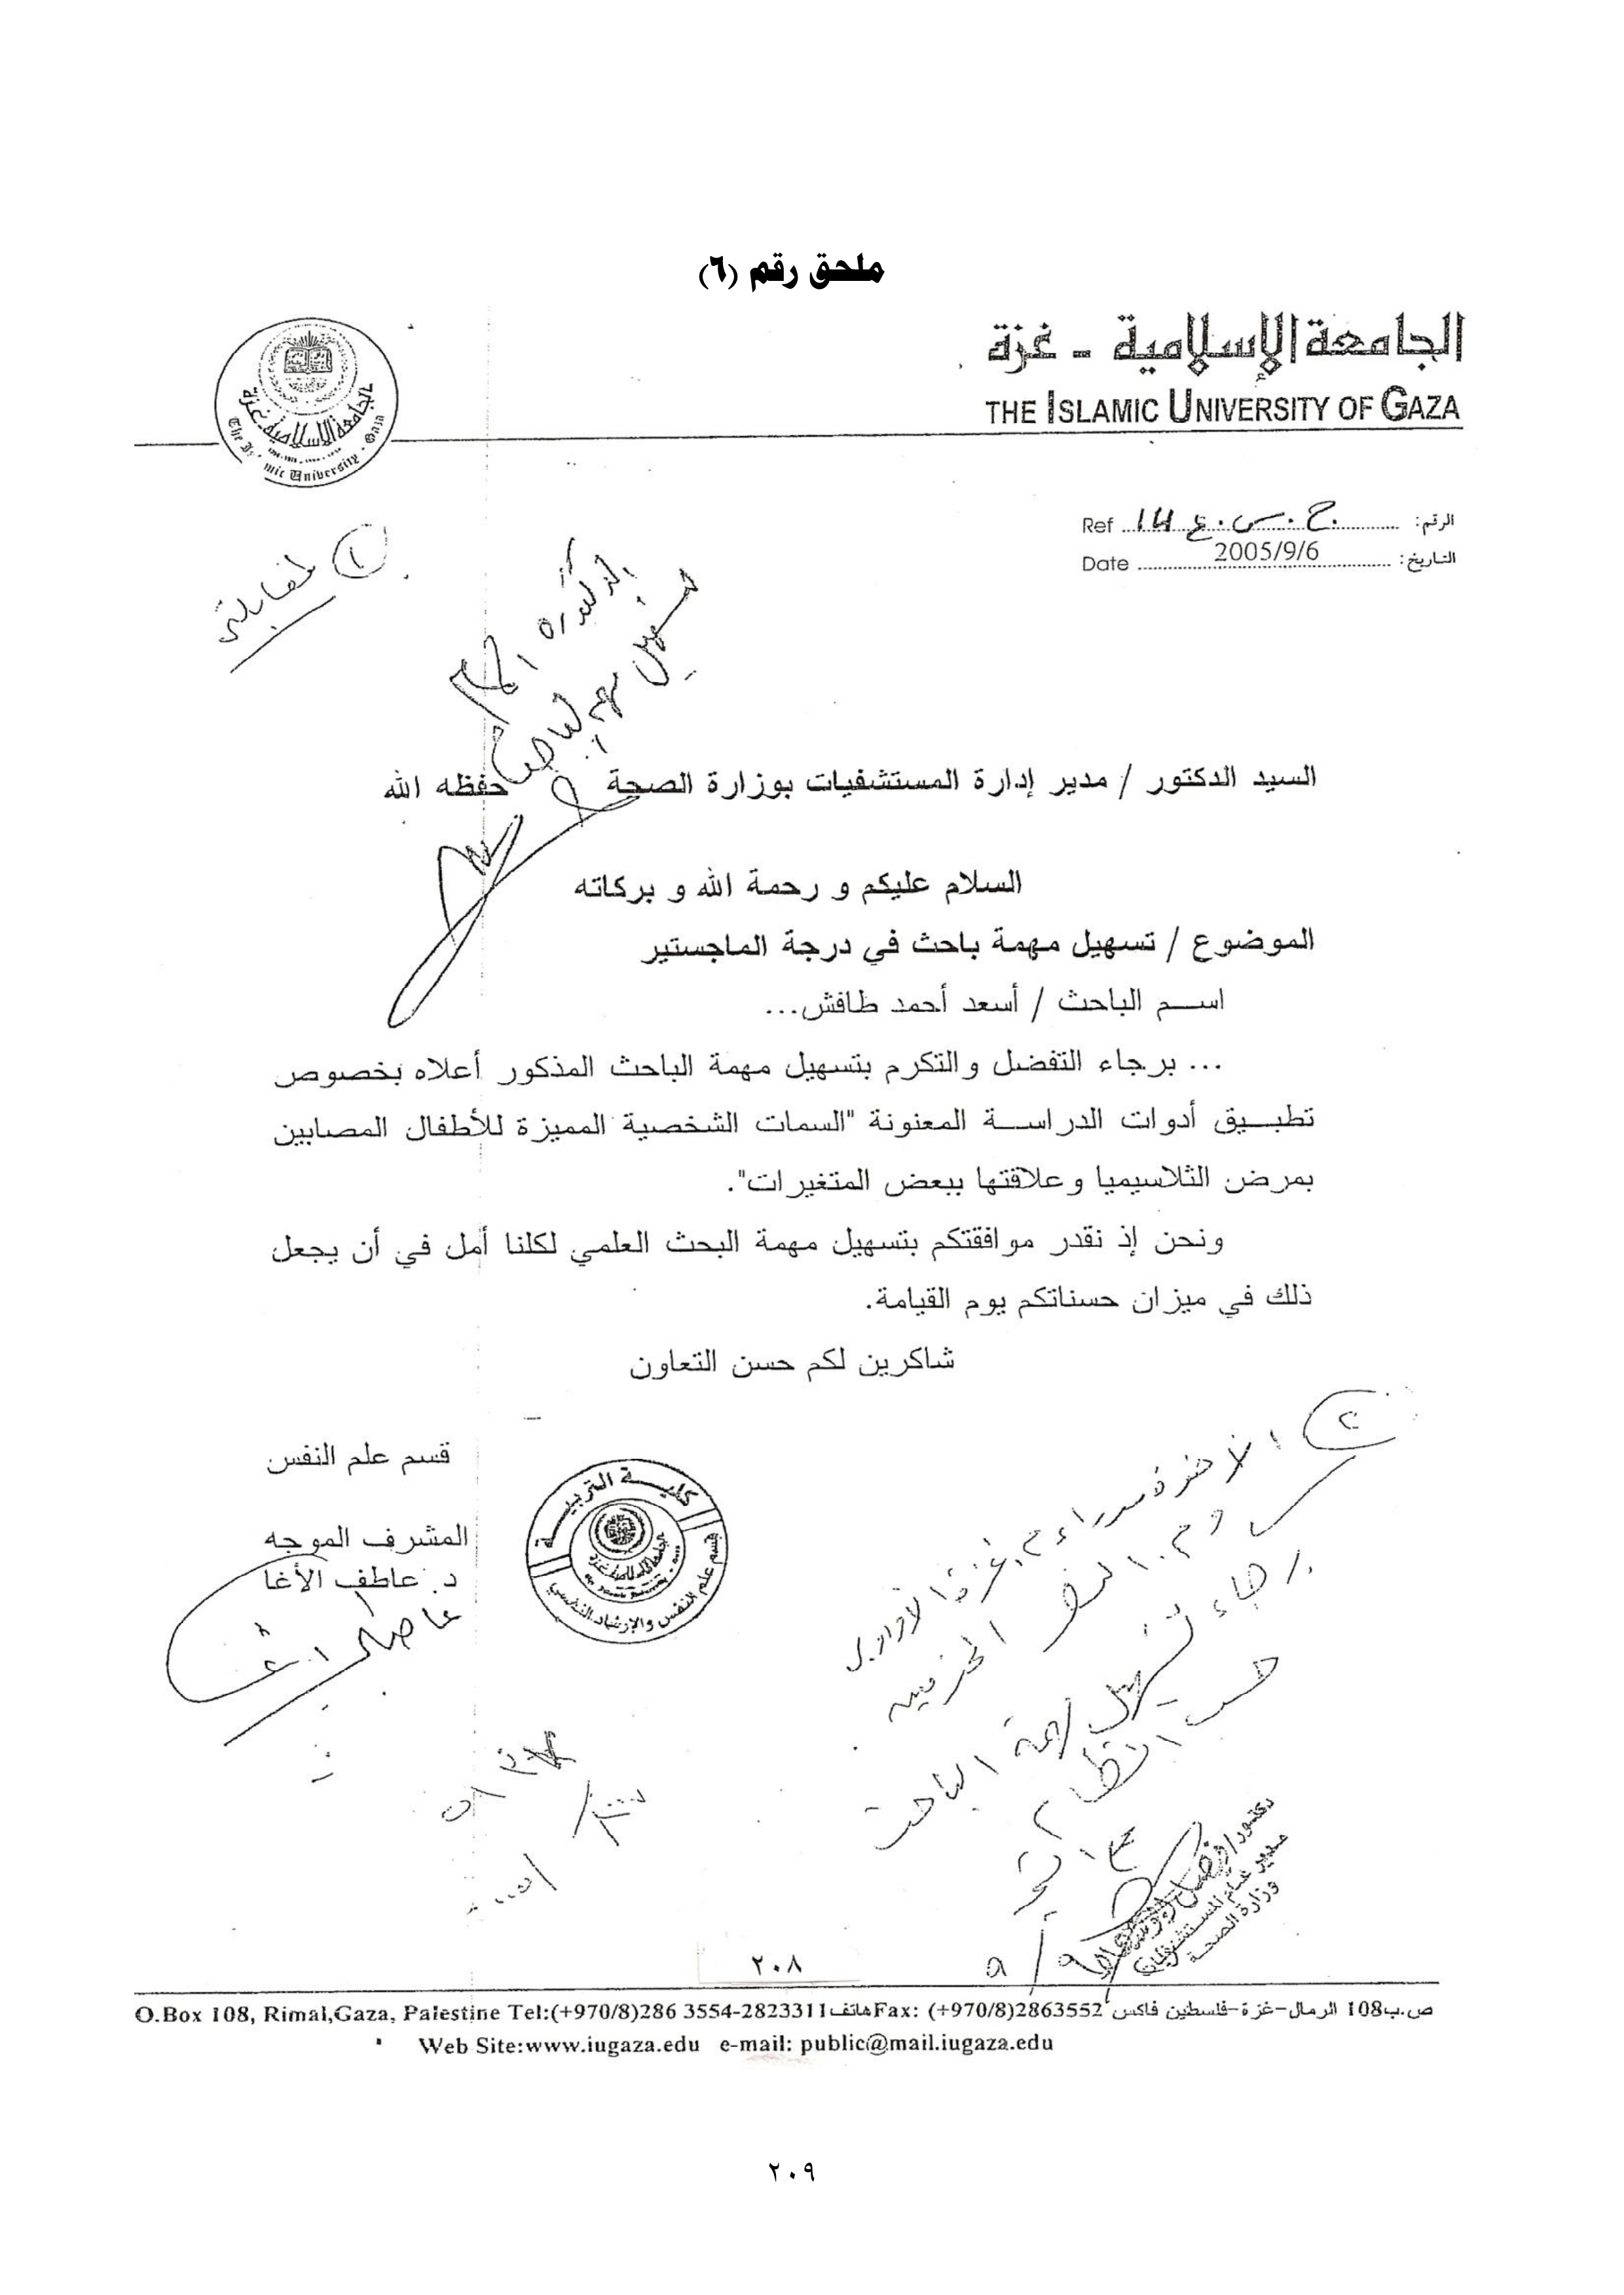 ملحق رقم (٦)
الجامعة الإسلامية - غزة
THE ISLAMIC UNIVERSITY OF GAZA
الجامعة الإسلامية غزة
الرقم: ج.س.غ Ref
التاريخ: 2005/9/6 Date
١
السيد الدكتور / مدير إدارة المستشفيات بوزارة الصحة حفظه الله
السلام عليكم و رحمة الله و بركاته
الموضوع / تسهيل مهمة باحث في درجة الماجستير
اسم الباحث / أسعد أحمد طافش...
... برجاء التفضل والتكرم بتسهيل مهمة الباحث المذكور أعلاه بخصوص
تطبيق أدوات الدراسة المعنونة "السمات الشخصية المميزة للأطفال المصابين
بمرض الثلاسيميا وعلاقتها ببعض المتغيرات".
ونحن إذ نقدر موافقتكم بتسهيل مهمة البحث العلمي لكلنا أمل في أن يجعل
ذلك في ميزان حسناتكم يوم القيامة.
شاكرين لكم حسن التعاون
قسم علم النفس
المشرف الموجه
د. عاطف الأغا
كلية التربية
قسم علم النفس والإرشاد النفسي
٢
برجاء تسهيل مهمة الباحث
حسب النظام
مدير عام المستشفيات
وزارة الصحة
٢٠٨
O.Box 108, Rimal,Gaza, Palestine Tel:(+970/8)286 3554-2823311هاتف Fax: (+970/8)2863552 ص.ب108 الرمال-غزة-فلسطين فاكس
Web Site:www.iugaza.edu e-mail: public@mail.iugaza.edu
٢٠٩